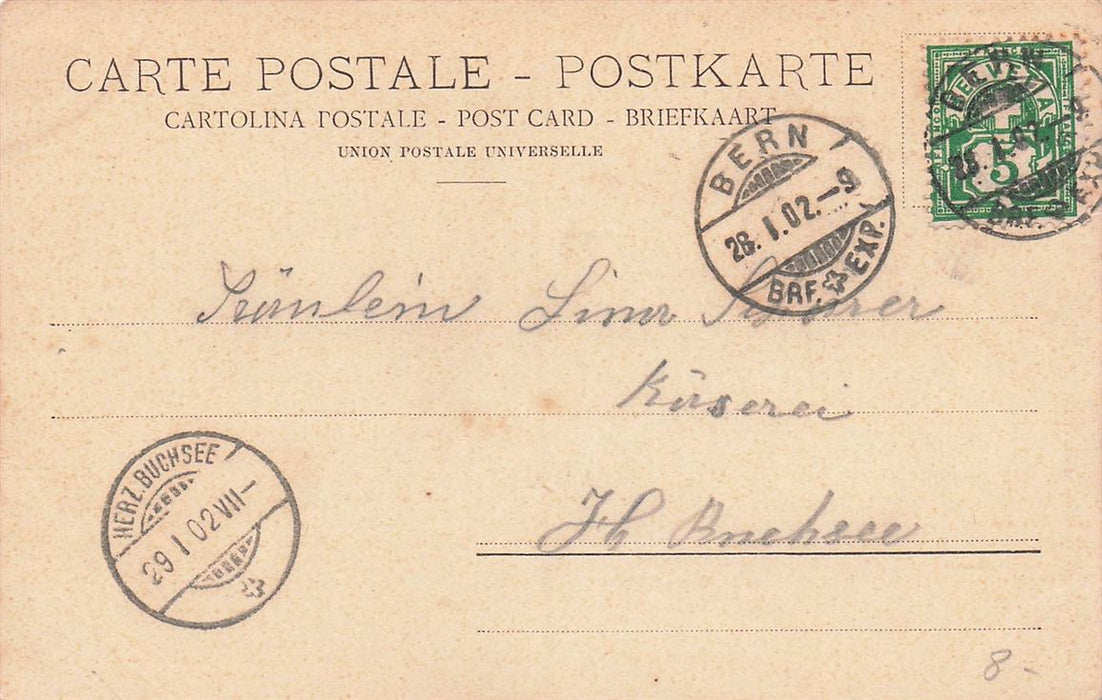 CARTE POSTALE - POSTKARTE
CARTOLINA POSTALE - POST CARD - BRIEFKAART
UNION POSTALE UNIVERSELLE
HELVETIA
5
BERN
28. I. 02.
BRF. EXP.
BERN
28. I. 02.-9
BRF. EXP.
Fräulein Lina
Käserei
H Buchsee
HERZ.BUCHSEE
29 I 02 VII-
8-